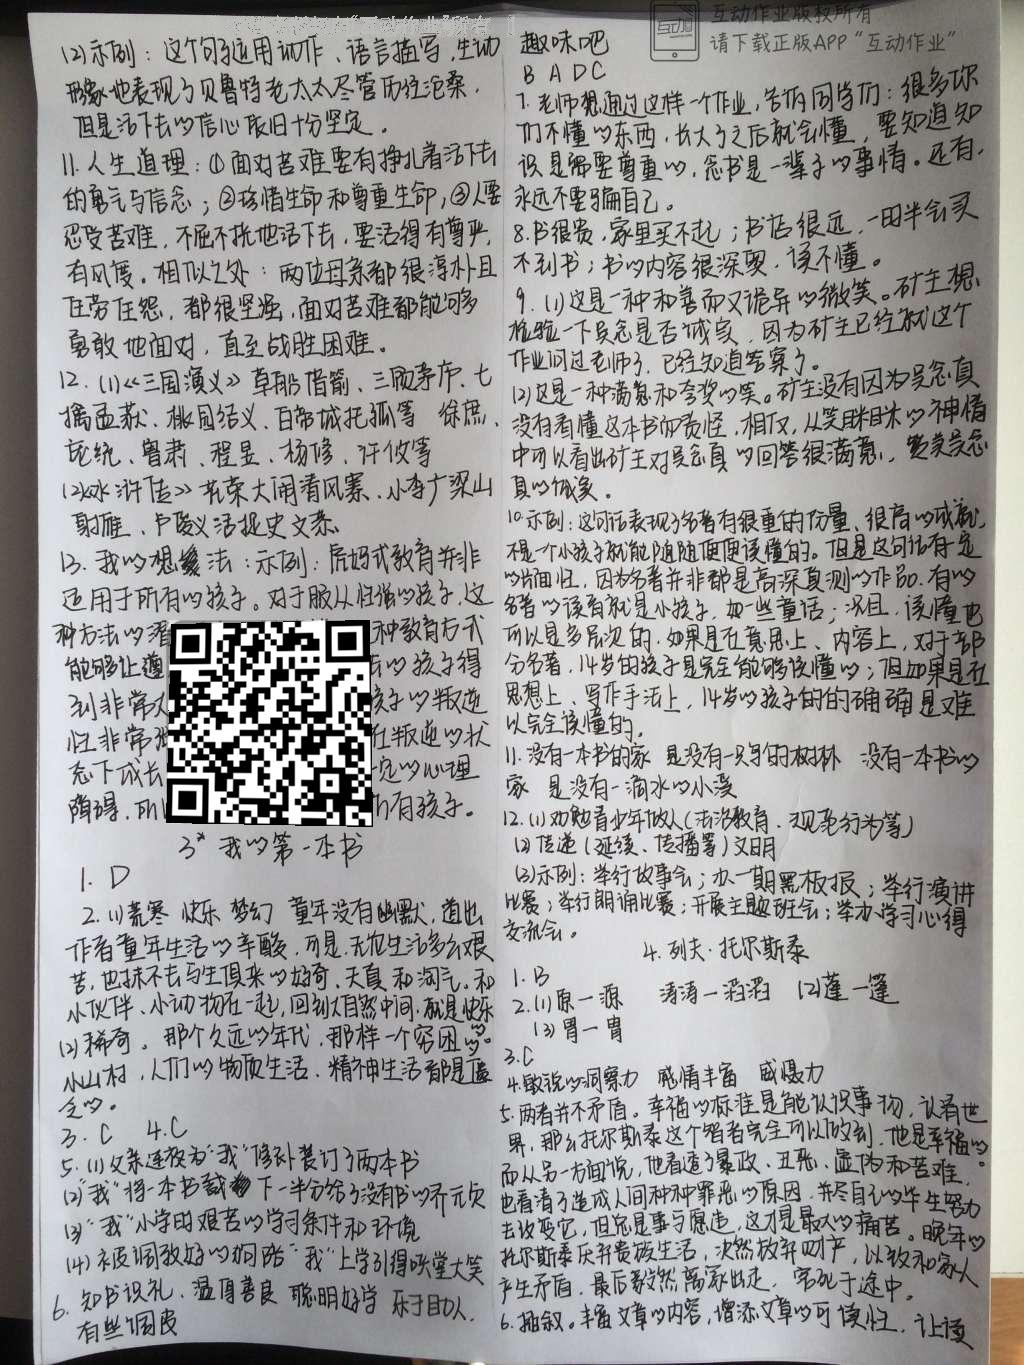 (2)示例：这个句子运用动作、语言描写，生动
形象地表现了贝鲁特老太太尽管历经沧桑，
但是活下去的信心依旧十分坚定。
11.人生道理：①面对苦难要有挣扎着活下去
的勇气与信念；②珍惜生命和尊重生命；③人要
忍受苦难，不屈不挠地活下去，要活得有尊严，
有风度。相似之处：两位母亲都很淳朴且
任劳任怨，都很坚强，面对苦难都能够
勇敢地面对，直至战胜困难。
12.(1)《三国演义》草船借箭、三顾茅庐、七
擒孟获、桃园结义、白帝城托孤等 徐庶、
庞统、鲁肃、程昱、杨修、许攸等
(2)《水浒传》花荣大闹清风寨、小李广梁山
射雁、卢俊义活捉史文恭
13.我的想法：示例：虎妈式教育并非
适用于所有的孩子。对于服从性强的孩子，这
种方法的潜 种教育方式
能够让遵 的孩子得
到非常大 孩子的叛逆
性非常强 在叛逆的状
态下成长 定的心理
障碍，所以 所有孩子。
3* 我的第一本书
1. D
2.(1)荒寒 快乐 梦幻 童年没有幽默，道出
作者童年生活的辛酸，可是，无论生活多么艰
苦，也抹不去与生俱来的好奇、天真和淘气。和
小伙伴、小动物在一起，回到大自然中间，就是快乐的。
(2)稀奇。那个久远的年代，那样一个穷困的
小山村，人们的物质生活、精神生活都是匮
乏的。
3. C 4.C
5.(1)父亲连夜为“我”修补装订了两本书
(2)“我”将一本书裁下一半分给了没有书的乔元贞
(3)“我”小学时艰苦的学习条件和环境
(4)被调教好的狗陪“我”上学引得哄堂大笑
6.知书识礼，温厚善良 聪明好学 乐于助人，
有些调皮
互动作业版权所有
请下载正版APP“互动作业”
趣味吧
B A D C
7.老师想通过这样一个作业，告诉同学们：很多你
们不懂的东西，长大了之后就会懂，要知道知
识是需要尊重的，念书是一辈子的事情。还有，
永远不要骗自己。
8.书很贵，家里买不起；书店很远，一时半会买
不到书；书的内容很深奥，读不懂。
9.(1)这是一种和善而又诡异的微笑。矿主想
检验一下吴念是否诚实，因为矿主已经就这个
作业问过老师了，已经知道答案了。
(2)这是一种满意和夸奖的笑。矿主没有因为吴念真
没有看懂这本书而责怪，相反，从笑眯眯的神情
中可以看出矿主对吴念真的回答很满意，赞美吴念
真的诚实。
10.示例：这句话表现了名著有很重的份量、很高的成就，
不是一个小孩子就能随随便便读懂的。但是这句话有一定
的片面性，因为名著并非都是高深莫测的作品，有的
名著的读者就是小孩子，如一些童话；况且，读懂也
可以是多层次的，如果是在意思上、内容上，对于部
分名著，14岁的孩子是完全能够读懂的；但如果是在
思想上、写作手法上，14岁的孩子的的确确是难
以完全读懂的。
11.没有一本书的家 是没有一只鸟的树林 没有一本书的
家 是没有一滴水的小溪
12.(1)劝勉青少年做人(法治教育、规范行为等)
(2)传递(延续、传播等)文明
(3)示例：举行故事会；办一期黑板报；举行演讲
比赛；举行朗诵比赛；开展主题班会；举办学习心得
交流会。
4.列夫·托尔斯泰
1.B
2.(1)原—源 涛涛—滔滔 (2)蓬—篷
(3)胃—胄
3.C
4.敏锐的洞察力 感情丰富 威慑力
5.两者并不矛盾。幸福的标准是能认识事物，认清世
界，那么托尔斯泰这个智者完全可以做到，他是幸福的。
而从另一方面说，他看透了暴政、丑恶、虚伪和苦难，
也看清了造成人间种种罪恶的原因，并尽自己的毕生努力
去改变它，但总是事与愿违，这才是最大的痛苦。晚年的
托尔斯泰厌弃贵族生活，决然放弃财产，以致和家人
产生矛盾，最后毅然离家出走，客死于途中。
6.插叙。丰富文章的内容，增添文章的可读性，让读